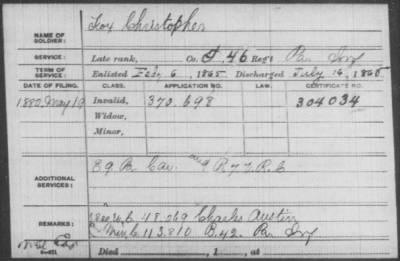 Fox Christopher
NAME OF
SOLDIER:
SERVICE: Late rank, Co. F. 46 Reg't Pa Inf
TERM OF
SERVICE: Enlisted Feby 6, 1865 Discharged July 16, 1865
DATE OF FILING. CLASS. APPLICATION NO. LAW. CERTIFICATE NO.
1880 May 19 Invalid, 370.698 304034
Widow,
Minor,
ADDITIONAL
SERVICES:
REMARKS: 48.069 Charles Austin
Min C 113.810 B. 42. Pa Inf
Died , 1 , at